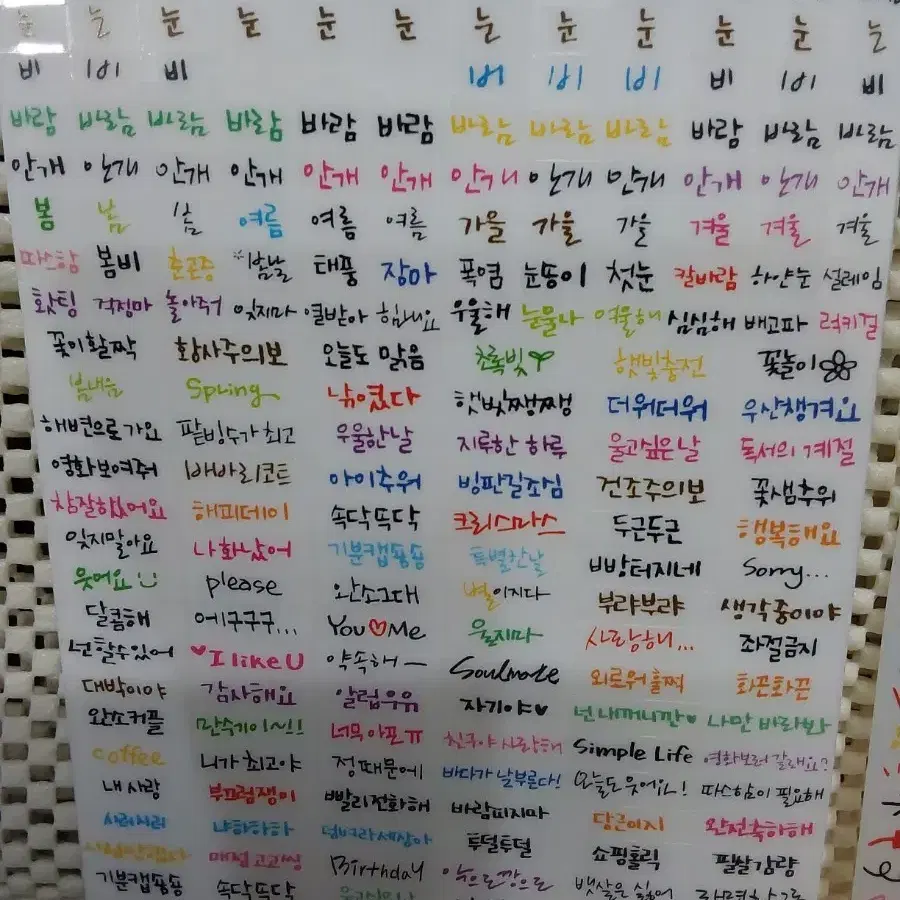 눈 눈 눈 눈 눈 눈 눈 눈 눈 눈 눈 눈
비 비 비 비 비 비 비 비 비
바람 바람 바람 바람 바람 바람 바람 바람 바람 바람 바람 바람
안개 안개 안개 안개 안개 안개 안개 안개 안개 안개 안개 안개
봄 봄 봄 여름 여름 여름 가을 가을 가을 겨울 겨울 겨울
따스함 봄비 춘곤증 봄날 태풍 장마 폭염 눈뭉이 첫눈 칼바람 하얀눈 설레임
홧팅 걱정마 놀아줘 잊지마 열받아 힘내요 우울해 눈물나 여울해 심심해 배고파 럭키걸
꽃이활짝 황사주의보 오늘도 맑음 초록빛 햇빛충전 꽃놀이
봄내음 Spring 낚였다 햇빛쨍쨍 더워더워 우산챙겨요
해변으로 가요 팥빙수가 최고 우울한날 지루한 하루 울고싶은날 독서의 계절
영화보여줘 바바리코트 아이추워 빙판길조심 건조주의보 꽃샘추위
참잘했어요 해피데이 쏙닥똑닥 크리스마스 두근두근 행복해요
잊지말아요 나화났어 기분캡숑숑 특별한날 빵빵터지네 Sorry...
웃어요 please 완소그대 별이지다 부랴부랴 생각중이야
달콤해 에구구구... You♥Me 울지마 사랑해... 좌절금지
넌할수있어 ♥I like U 약속해ㅡ Soulmate 외로워훌쩍 화끈화끈
대박이야 감사해요 알럽유유 자기야♥ 넌내꺼니깐♥ 나만 바라봐
완쏘커플 만수게이~!! 너무아포ㅠ 친구야 사랑해 Simple Life 영화보러 갈래요?
coffee 니가 최고야 정때문에 바다가 날부른다! 오늘도웃어요! 따스함이 필요해
내 사랑 부끄럼쟁이 빨리전화해 바람피지마 당근이지 완전축하해
샤랴샤리 냐하하하 덤벼라세상아 투덜투덜 쇼핑홀릭 필살감량
매점고고씽 Birthday 으으로깡으로 뱃살은 싫어
기분캡숑숑 쏙닥똑닥